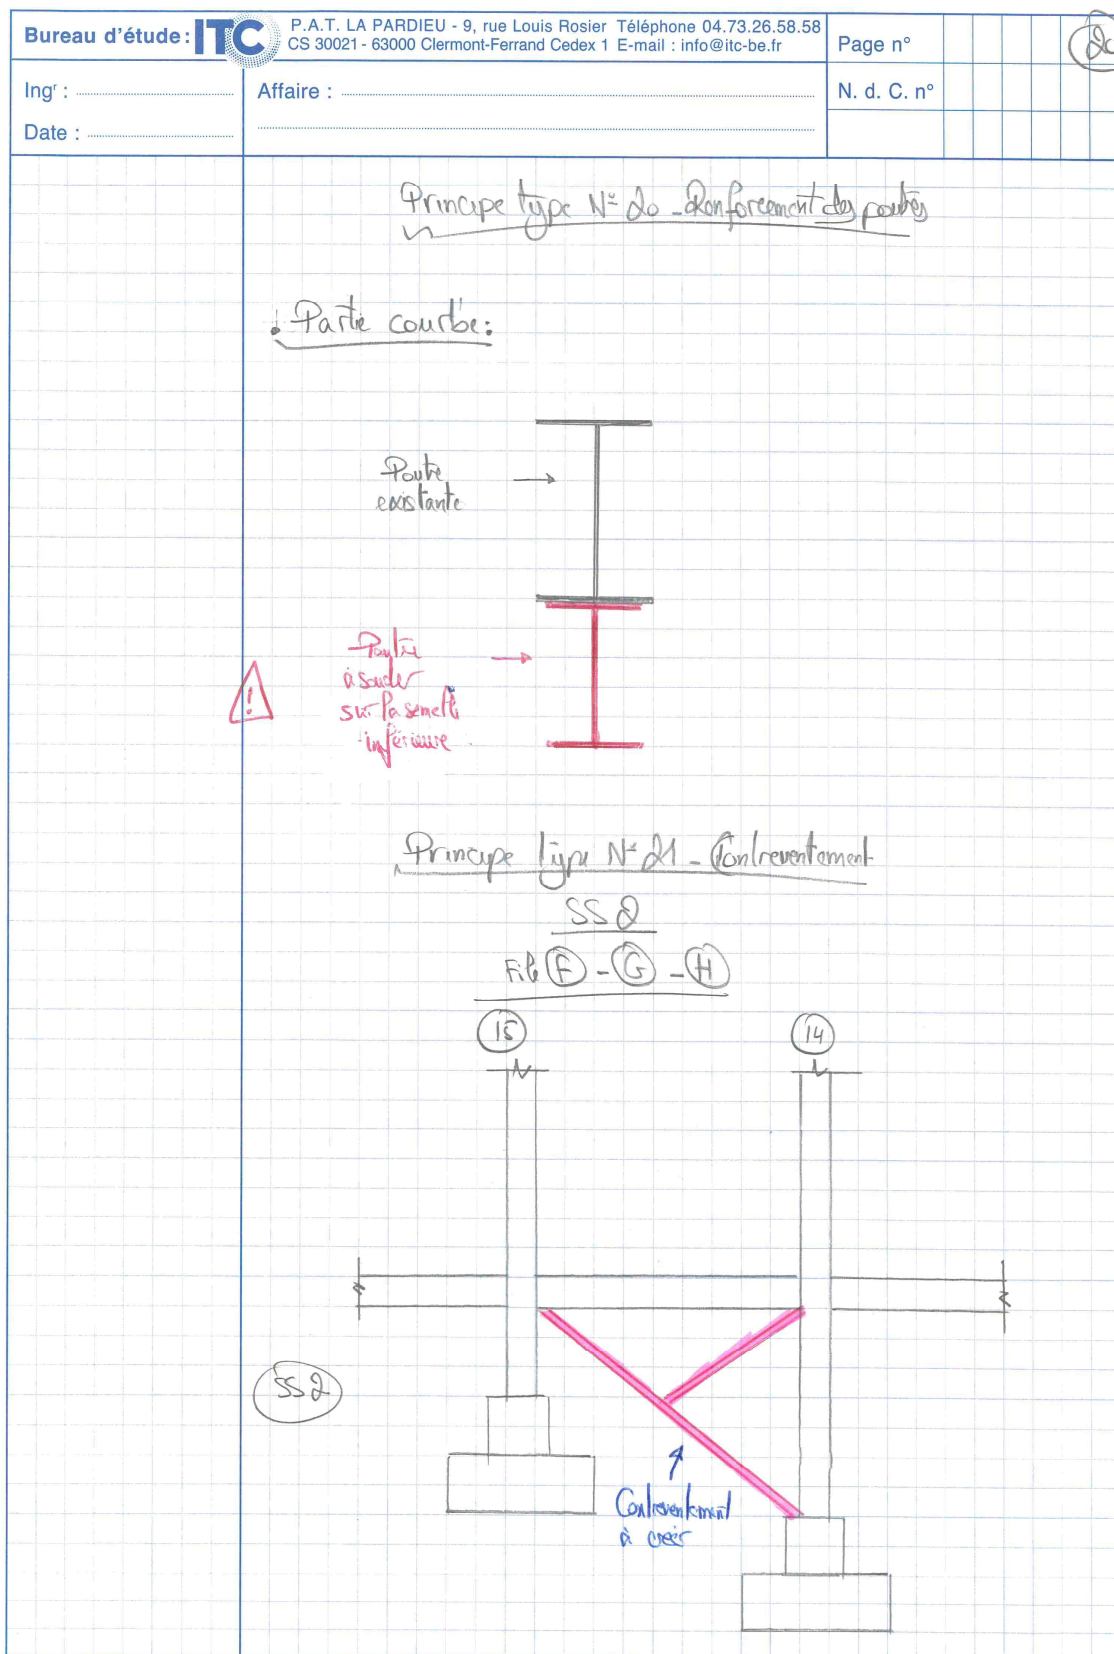 Bureau d'étude: ITC
P.A.T. LA PARDIEU - 9, rue Louis Rosier Téléphone 04.73.26.58.58
CS 30021 - 63000 Clermont-Ferrand Cedex 1 E-mail : info@itc-be.fr
Page n°
Ingr :
Affaire :
N. d. C. n°
Date :
Principe type N° 20 - Renforcement des poutres
Partie courbe:
Poutre
existante
Poutre
à souder
sur la semelle
inférieure
!
Principe type N° 21 - Contreventement
SS2
File F - G - H
15
14
SS2
Contreventement
à créer